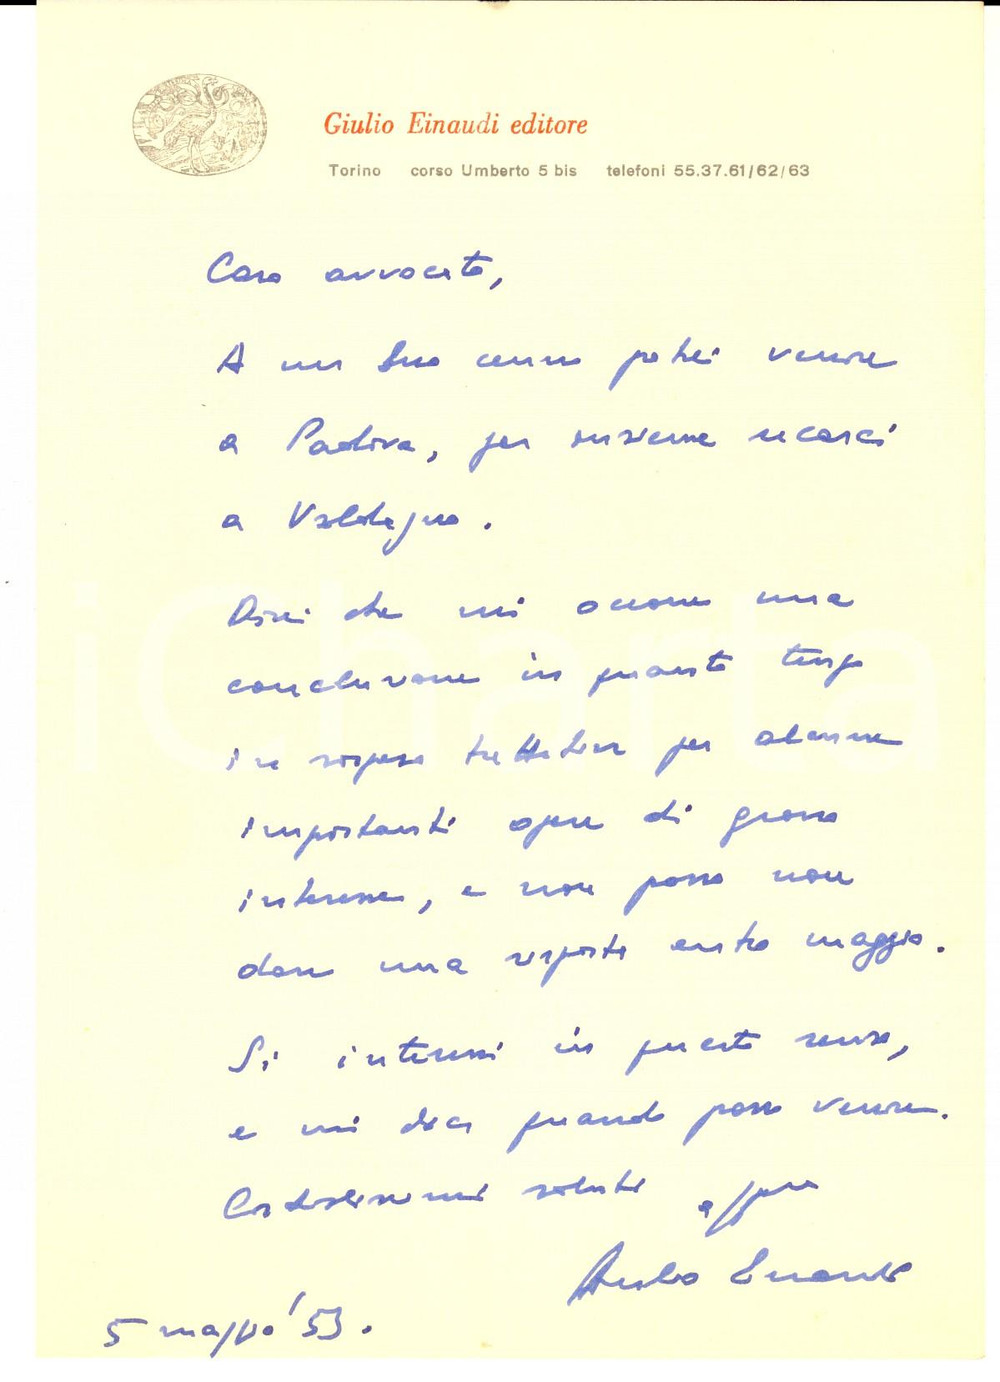 Giulio Einaudi editore
Torino corso Umberto 5 bis telefoni 55.37.61/62/63
Caro avvocato,
A un Suo cenno potrei venire
a Padova, per insieme recarci
a Valdagno.
Dirci che mi occorre una
conclusione in questo tempo
in sospeso trattative per alcune
importanti opere di grosso
interesse, e non posso non
dare una risposta entro maggio.
Si interessi in questo senso,
e mi dica quando posso venire.
Cordialissimi saluti
Giulio Einaudi
5 maggio '53.
iCharta